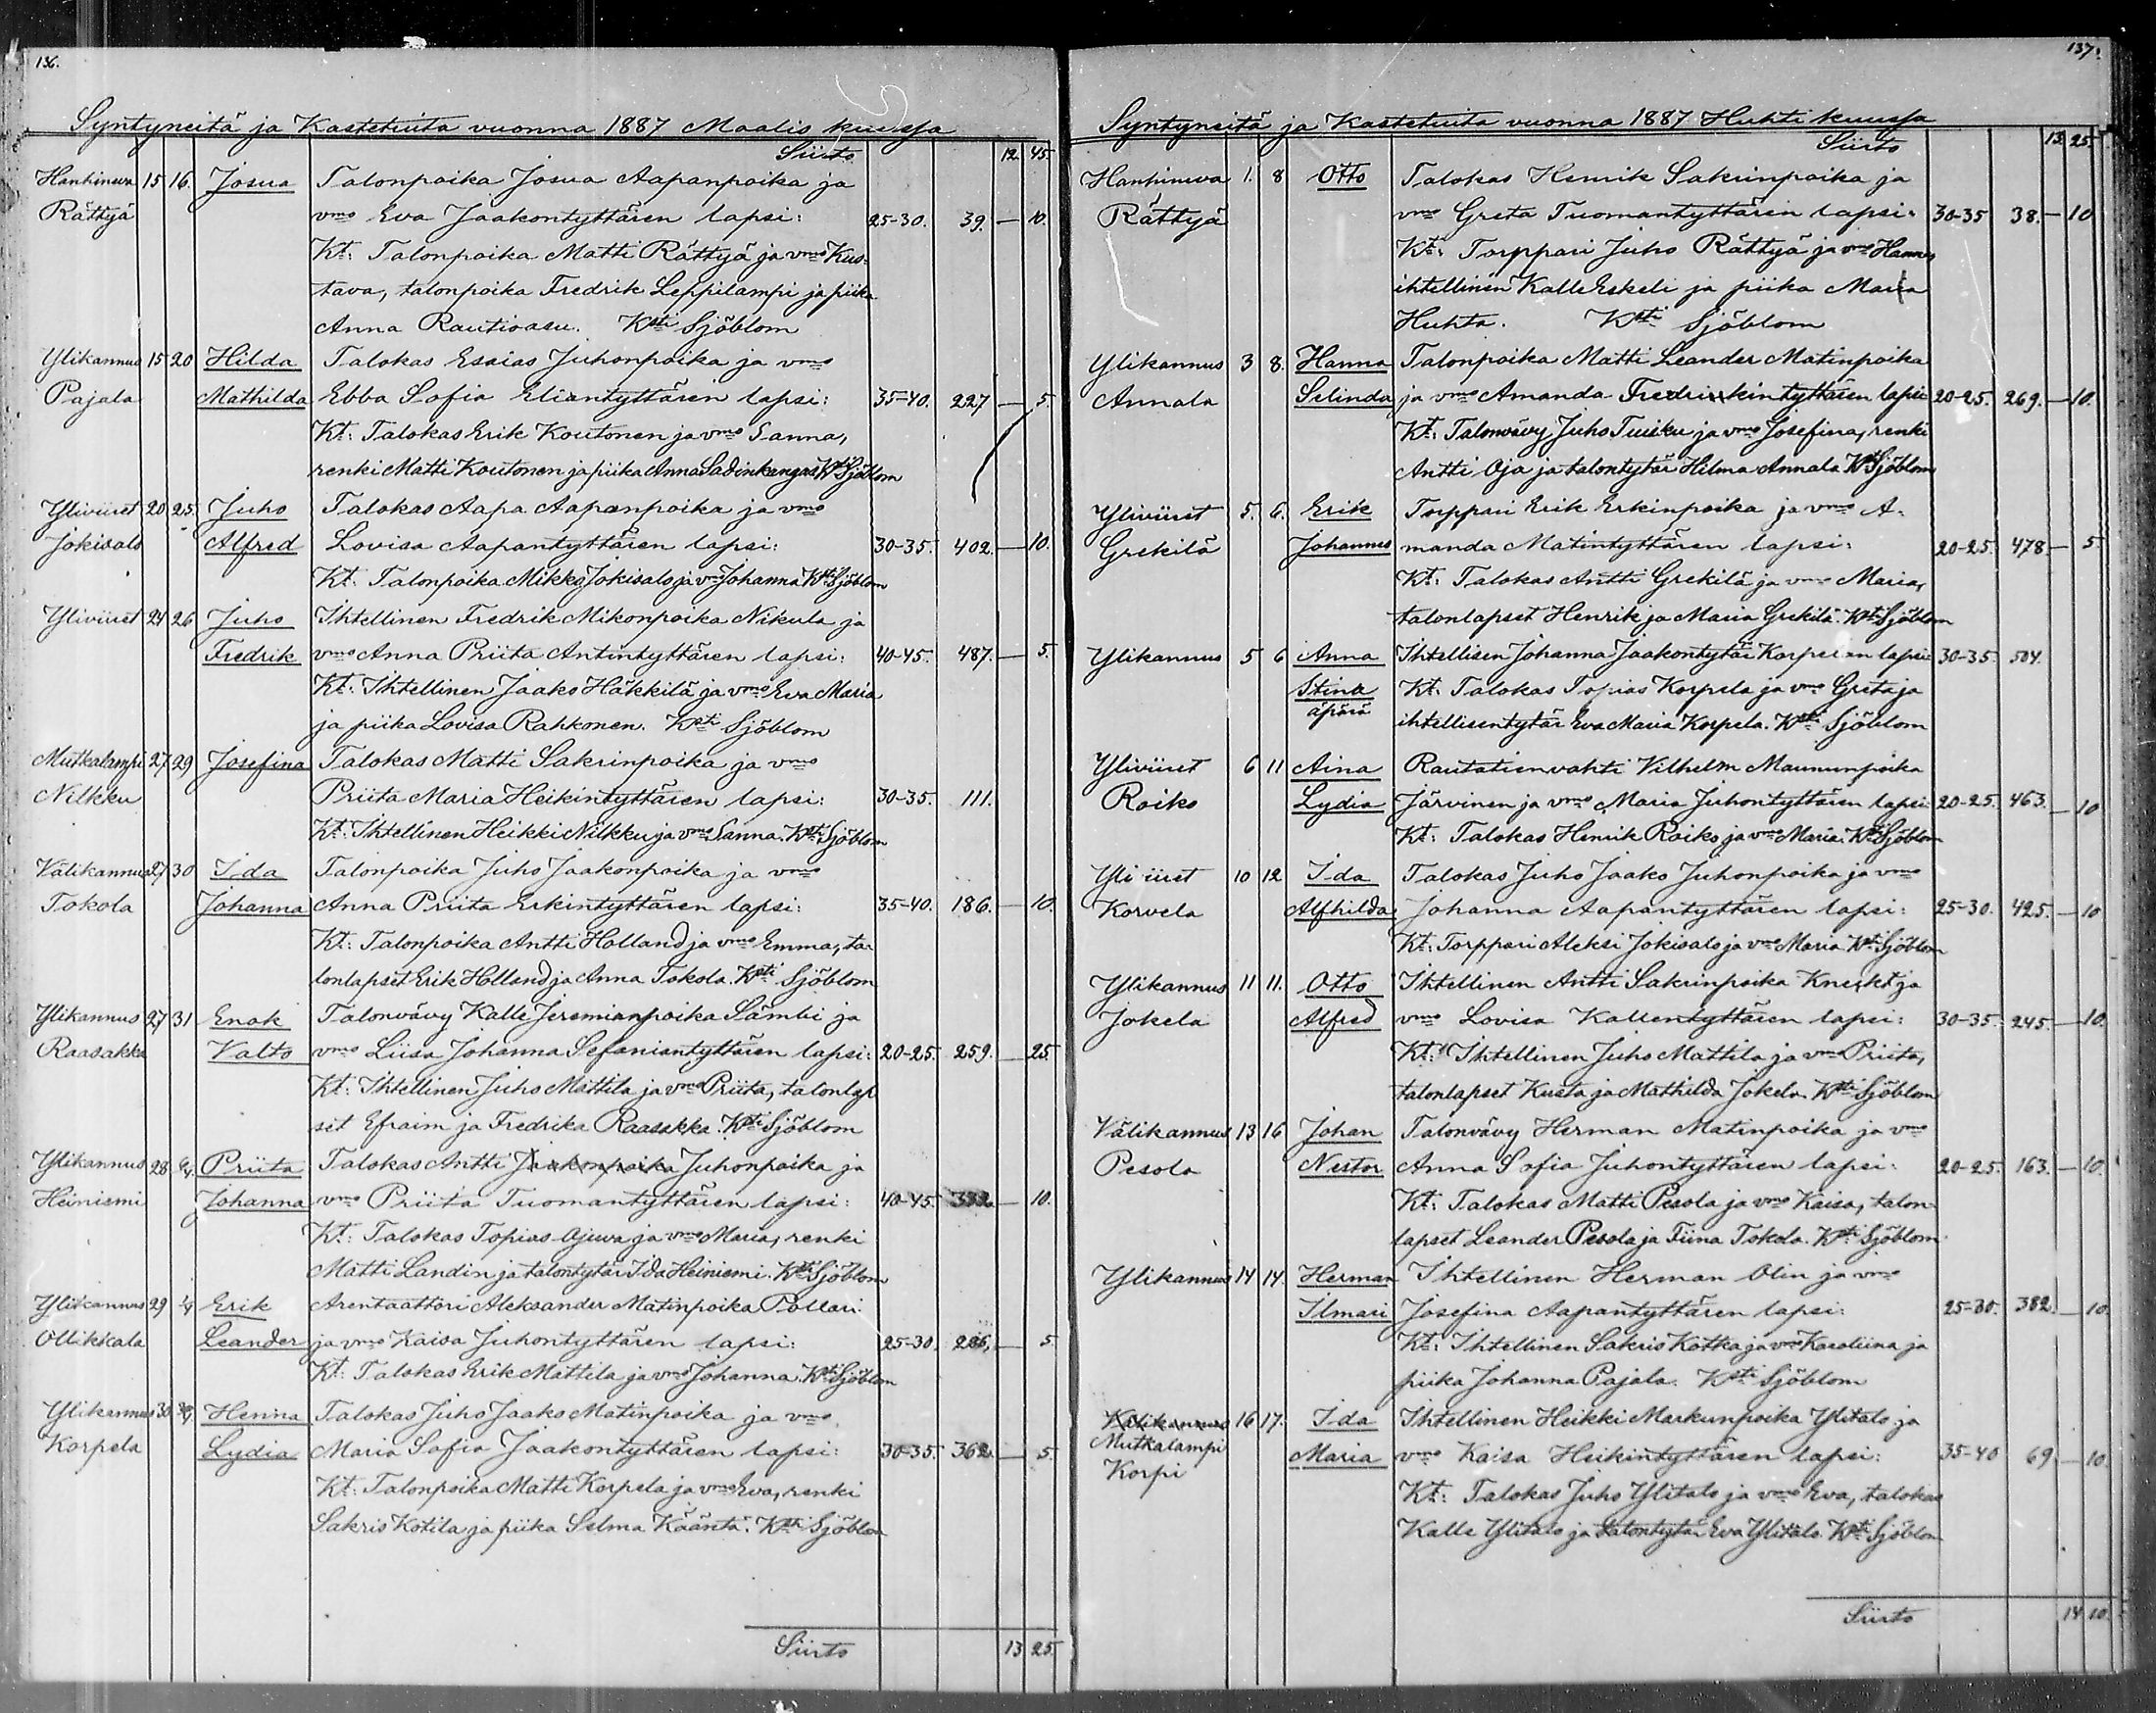 136.
Syntyneitä ja Kastetuita vuonna 1887 Maalis kuussa
Siirto 12. 45.
Hanhineva 15 16. Josua Talonpoika Josua Aapanpoika ja
Rättyä vmo Eva Jaakontyttären lapsi: 25-30. 39. — 10.
Kt: Talonpoika Matti Rättyä ja vmo Kus-
tava, talonpoika Fredrik Leppilampi ja piika
Anna Rautioasu. Ksti Sjöblom
Ylikannus 15 20 Hilda Talokas Esaias Juhonpoika ja vmo
Pajala Mathilda Ebba Sofia Eliantyttären lapsi: 35-40. 227 — 5.
Kt: Talokas Erik Koutonen ja vmo Sanna,
renki Matti Koutonen ja piika Anna Sadinkangas Kst Sjöblom
Yliviiret 20 25. Juho Talokas Aapa Aapanpoika ja vmo
Jokisalo Alfred Lovisa Aapantyttären lapsi: 30-35. 402. — 10.
Kt: Talonpoika Mikko Jokisalo ja vmo Johanna Ksti Sjöblom
Yliviiret 24 26 Juho Ihtellinen Fredrik Mikonpoika Nikula ja
Fredrik vmo Anna Priita Antintyttären lapsi: 40-45. 487. — 5.
Kt: Ihtellinen Jaako Häkkilä ja vmo Eva Maria
ja piika Lovisa Rahkonen. Ksti Sjöblom
Mutkalampi 27 29 Josefina Talokas Matti Sakrinpoika ja vmo
Nilkku Priita Maria Heikintyttären lapsi: 30-35. 111.
Kt: Ihtellinen Heikki Nilkku ja vmo Sanna. Ksti Sjöblom
Välikannus 27 30 Ida Talonpoika Juho Jaakonpoika ja vmo
Tokola Johanna Anna Priita Erkintyttären lapsi: 35-40. 186. — 10.
Kt: Talonpoika Antti Holland ja vmo Emma, ta-
lonlapset Erik Holland ja Anna Tokola. Ksti Sjöblom
Ylikannus 27 31 Enok Talonvävy Kalle Jeremianpoika Sämbi ja
Raasakka Valto vmo Liisa Johanna Sefaniantyttären lapsi: 20-25. 259. — 25.
Kt: Ihtellinen Juho Mattila ja vmo Priita, talonlap
set Efraim ja Fredrika Raasakka. Ksti Sjöblom
Ylikannus 28 Priita Talokas Antti Jaakonpoika Juhonpoika ja
Heiniemi Johanna vmo Priita Tuomantyttären lapsi: 40-45. — 10.
Kt: Talokas Topias Ojuva ja vmo Maria, renki
Matti Landin ja talontytär Ida Heiniemi. Ksti Sjöblom
Ylikannus 29 Erik Arentaattori Aleksander Matinpoika Pollari
Ollikkala Leander ja vmo Kaisa Juhontyttären lapsi: 25-30. — 5
Kt: Talokas Erik Mattila ja vmo Johanna. Ksti Sjöblom
Ylikannus 30 Henna Talokas Juho Jaako Matinpoika ja vmo
Korpela Lydia Maria Sofia Jaakontyttären lapsi: 30-35. 362. — 5.
Kt: Talonpoika Matti Korpela ja vmo Eva, renki
Sakris Kotila ja piika Selma Kääntä. Ksti Sjöblom
Siirto 13 25.
137.
Syntyneitä ja Kastetuita vuonna 1887 Huhti kuussa
Siirto 13 25.
Hanhineva 1. 8 Otto Talokas Henrik Sakrinpoika ja
Rättyä vmo Greta Tuomantyttären lapsi: 30-35 38. — 10
Kt: Torppari Juho Rättyä ja vmo Hanna
ihtellinen Kalle Eskeli ja piika Maria
Huhta. Ksti Sjöblom
Ylikannus 3 8. Hanna Talonpoika Matti Leander Matinpoika
Annala Selinda ja vmo Amanda Fredrikintyttären lapsi 20-25. 269. — 10.
Kt: Talonvävy Juho Tuisku ja vmo Josefina, renki
Antti Oja ja talontytär Hilma Annala Kst Sjöblom
Yliviiret 5. 6. Erik Torppari Erik Erkinpoika ja vmo A-
Grekilä Johannes manda Matintyttären lapsi: 20-25. 478 — 5.
Kt: Talokas Antti Grekilä ja vmo Maria,
talonlapset Henrik ja Maria Grekilä. Ksti Sjöblom
Ylikannus 5 6 Anna Ihtellisen Johanna Jaakontytär Korpelan lapsi 30-35. 504.
Stina Kt: Talokas Topias Korpela ja vmo Greta ja
äpärä ihtellisentytär Eva Maria Korpela. Ksti Sjöblom
Yliviiret 6 11 Aina Rautatienvahti Vilhelm Maununpoika
Roiko Lydia Järvinen ja vmo Maria Juhontyttären lapsi 20-25. 463. — 10
Kt: Talokas Henrik Roiko ja vmo Maria. Ksti Sjöblom
Yliviiret 10 12 Ida Talokas Juho Jaako Juhonpoika ja vmo
Korvela Alfhilda Johanna Aapantyttären lapsi: 25-30. 425. — 10
Kt: Torppari Aleksi Jokisalo ja vmo Maria Ksti Sjöblom
Ylikannus 11 11. Otto Ihtellinen Antti Sakrinpoika Knekt ja
Jokela Alfred vmo Lovisa Kallentyttären lapsi: 30-35. 245. — 10.
Kt: Ihtellinen Juho Mattila ja vmo Priita,
talonlapset Kusta ja Mathilda Jokela. Ksti Sjöblom
Välikannus 13 16 Johan Talonvävy Herman Matinpoika ja vmo
Pesola Nestor Anna Sofia Juhontyttären lapsi: 20-25. 163. — 10.
Kt: Talokas Matti Pesola ja vmo Kaisa, talon-
lapset Leander Pesola ja Tiina Tokola. Ksti Sjöblom
Ylikannus 14 14. Herman Ihtellinen Herman Olin ja vmo
Ilmari Josefina Aapantyttären lapsi: 25-30. 382. — 10.
Kt: Ihtellinen Sakris Kotka ja vmo Karoliina ja
piika Johanna Pajala. Ksti Sjöblom
16 17. Ida Ihtellinen Heikki Markunpoika Ylitalo ja
Mutkalampi Maria vmo Kaisa Heikintyttären lapsi: 35-40 69 — 10.
Korpi Kt: Talokas Juho Ylitalo ja vmo Eva, talokas
Kalle Ylitalo ja talontytär Eva Ylitalo. Ksti Sjöblom
Siirto 14 10.